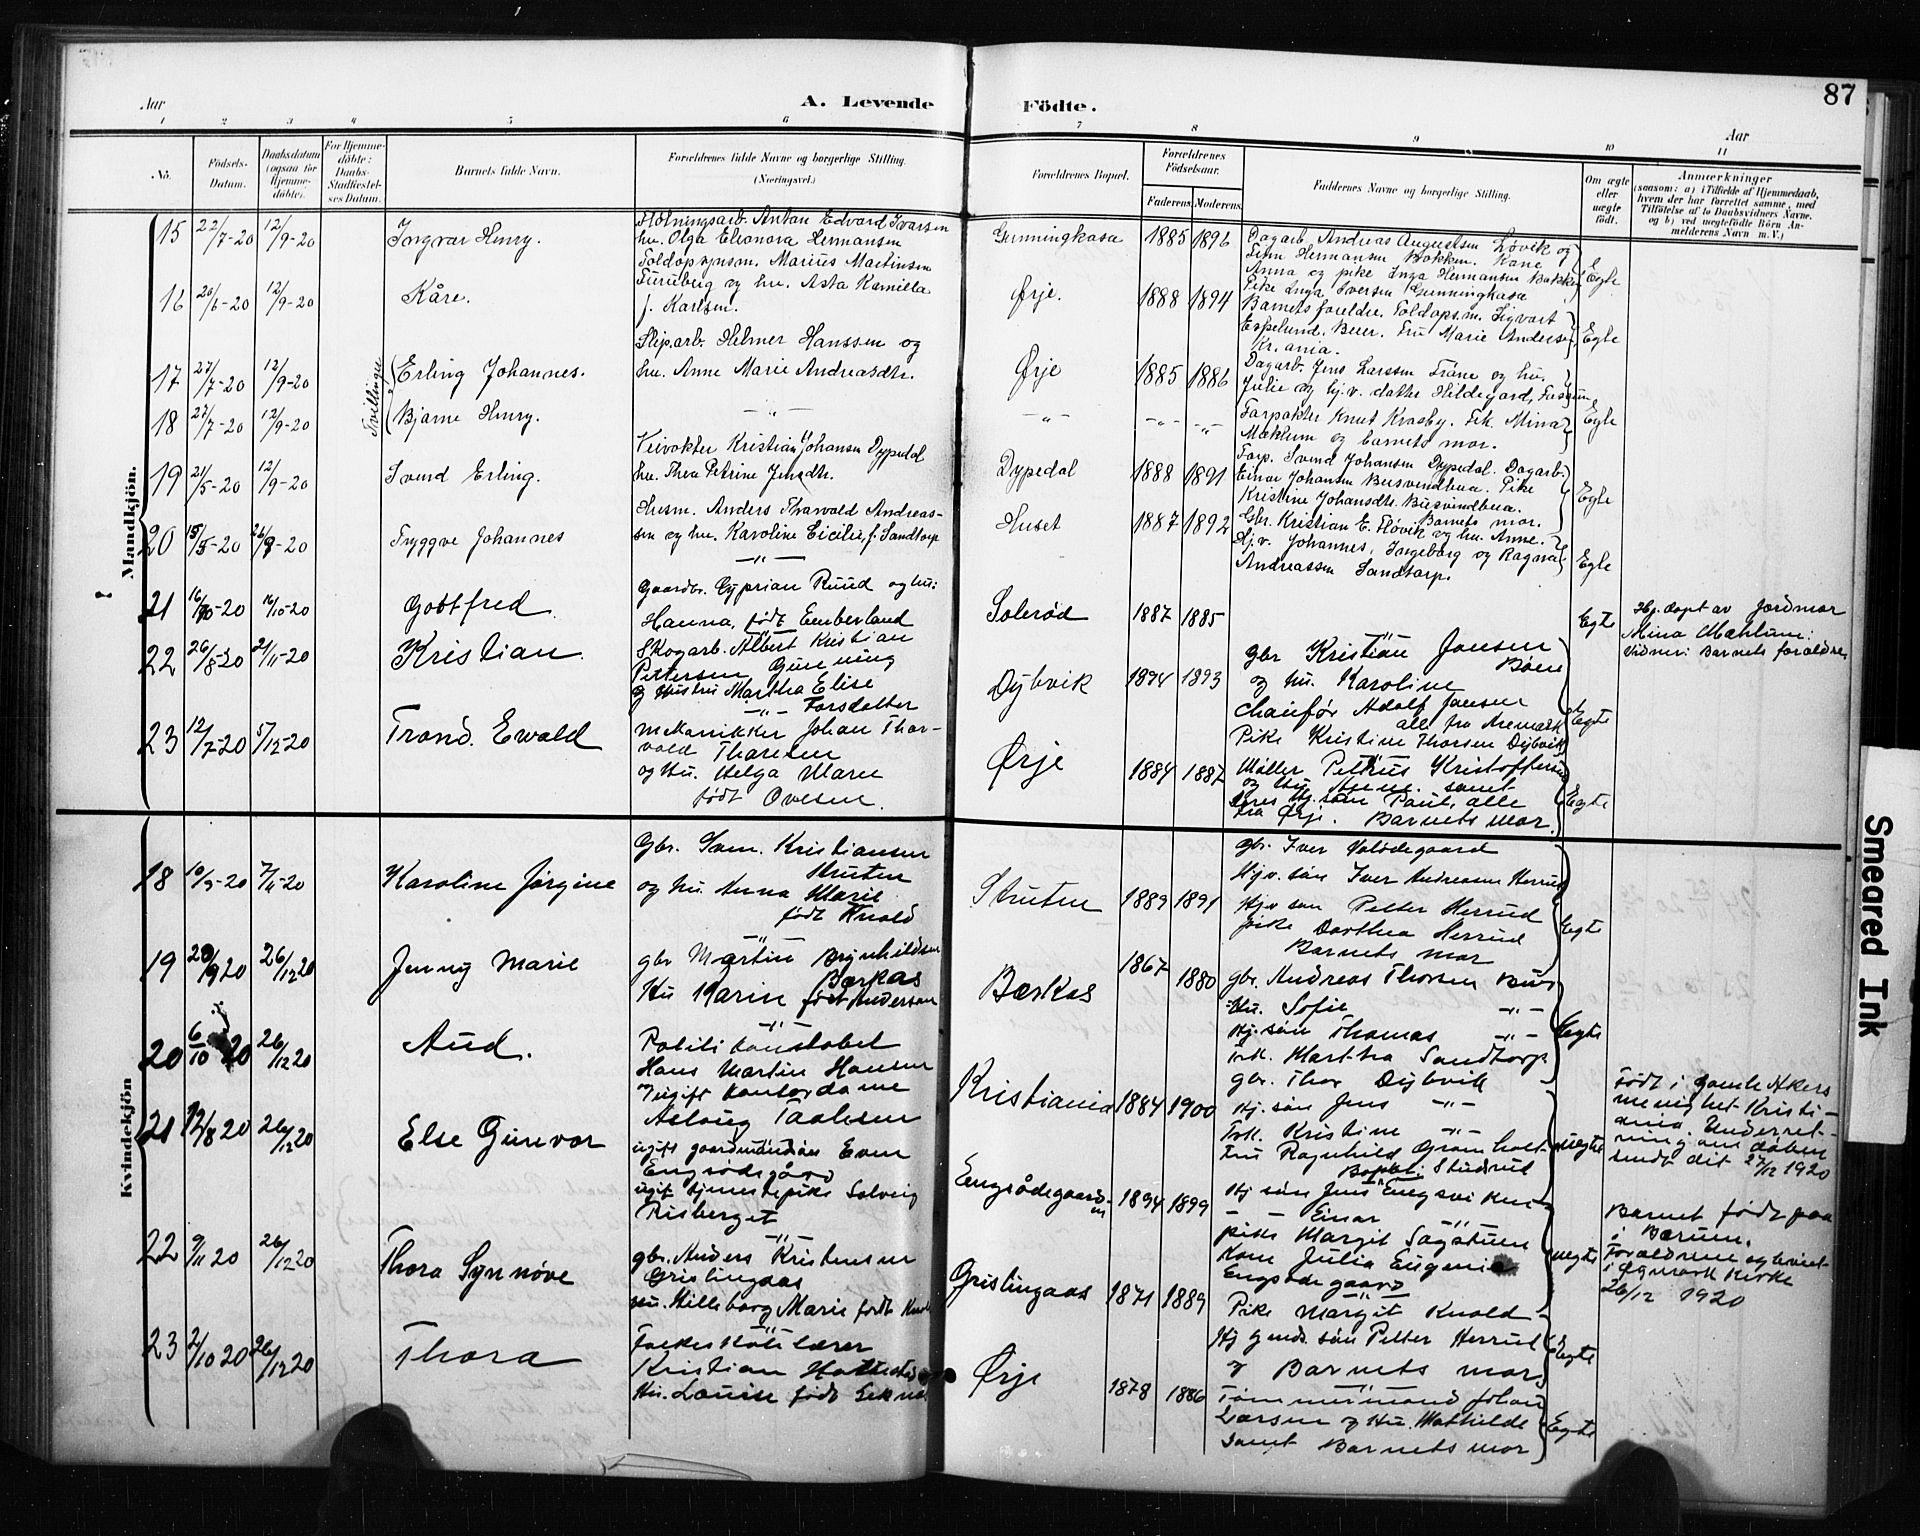 Aar
A. Levende
Födte.
87
Aar
1 2 3 4 5 6 7 8 9 10 11
No.
Födsels-Datum.
Daabsdatum (ogsaa for Hjemme-döbte).
For Hjemme-döbte: Daabs-Stadfæstel-ses Datum.
Barnets fulde Navn.
Forældrenes fulde Navne og borgerlige Stilling.
(Næringsvei.)
Forældrenes Bopæl.
Forældrenes Födselsaar.
Faderens. Moderens.
Faddernes Navne og borgerlige Stilling.
Om ægte eller uægte födt.
Anmærkninger
(saasom: a) i Tilfælde af Hjemmedaab,
hvem der har forrettet samme, med
Tilföielse af to Daabsvidners Navne,
og b) ved uægtefödte Börn An-
melderens Navn m. V.)
Mandkjön.
15 22/7-20 12/9-20 Ingvar Henry.
Anton Edvard Ivarsen
hu. Olga Eleonora Hermansen
Gunningkasa 1885 1896
Dagarb. Andreas Augustsen Løvik og
Hermansen Bakken. Kone
Anna og pike Inga Hermansen Bakken
Pike Inga Iversen Gunningkasa
Egte
16 20/6-20 12/9-20 Kåre.
Toldopsynsm. Marius Martinsen
Tureberg og hu. Asta Kamilla
f. Karlsen.
Ørje. 1888 1894
Barnets foreldre. Toldops.m. Sigvart
Espelund. Beier. Fru Marie Andersen
Kr.ania.
Egte
Tvillinger
17 27/7-20 12/9-20 Erling Johannes.
Sliparb. Helmer Hanssen og
hu. Anne Marie Andreasdtr.
Ørje 1885 1886
Dagarb. Jens Larssen Trane og hu.
Julie og hj.v. datter Hildegard,
18 27/7-20 12/9-20 Bjarne Henry.
-"- -"- -"- -"-
Forpakter Knut Krosby. Frk. Mina
Mæhlum og barnets mor.
Egte
19 21/5-20 12/9-20 Svend Erling.
Veivokter Kristian Johansen Dypedal
hu. Thea Petrine Jensdtr.
Dypedal 1888 1891
Forp. Svend Johansen Dypedal. Dagarb.
Einar Johansen Busvendbua. Pike
Kristine Johansdtr. Busvindbua.
Barnets mor.
Egte
20 15/5-20 26/9-20 Tryggve Johannes
Husm. Anders Thorvald Andreas-
sen og hu. Karoline Cicilie, f. Sandtorp
-"-
Huset 1887 1892
Gbr. Kristian E. Fløvik og hu. Anne.
Hj.v. Johannes, Ingeborg og Ragna
Andreassen Sandtorp.
Egte
21 16/10-20 16/10-20 Godtfred
Gaardbr. Cyprian Ruud og hu:
Hanna, født Emberland
Solerød 1887 1885
Egte
Hj. døpt av Jordmor
Mina Mæhlum:
Vidner: Barnets foreldre
22 26/8-20 21/11-20 Kristian.
Skogarb. Albert Kristian
Pettersen Gunning
og hustru Martha Elise
-"- Torsdatter
Dybvik 1894 1893
gbr Kristian Jansen
Bøen
og hu. Karoline
Chauffør Adolf Jansen
alle fra Aremark
Pike Kristine Thorsen Dybvik
Egte
23 12/7-20 5/12-20 Trond. Ewald
mekanikker Johan Thor-
vald Thoresen
og hu. Helga Marie
født Ovesen.
Ørje 1884 1887
Møller Petrus Kristoffersen
og hu samt
deres hj. søn Paul, alle
fra Ørje. Barnets mor.
Egte
Kvindekjön
18 10/9-20 7/11-20 Karoline Jørgine
Gbr. Sven. Kristiansen
Struten
og hu. Anna Marie
født Knold
Struten 1889 1891
gbr. Iver
Hjv. søn Iver Andreasen Herrud
Hjv søn Petter Herrud
pike Dorthea Herrud
Barnets mor
Egte
19 20/9 20 26/12 20 Jenny Marie
-"-
gbr Martin Brynhildsen
Bærkas
Hu Karin født Anderson
Bærkas 1867 1880
gbr. Andreas Thorsen Bøe
Hu. Sofie -"-
Hj. søn Thomas -"-
Frk. Martha Sandtorp
Egte
20 6/10 20 26/12 20 Aud.
-"-
Politikonstabel
Hans Martin Hansen
Ugift kontordame
Aslaug Paulsen
Kristiania 1884 1900
gbr. Thor Dybvik
Hj. søn Jens -"-
Frk. Kristine -"-
Fru Ragnhild Gramholt
Bopæl: Studrud
uegte
Født i gamle Akers
menighet Kristi-
ania. Underret-
ning om dåben
sendt dit 27/12 1920
21 12/8 20 26/12 20 Else Gunvor
ugift gaardmandssøn Even
Engsødegård
ugift tjenestepike Solveig
Risberget
Engsødegaarden 1894 1899
Hj søn Jens Engsviken
-"- Einar -"-
pike Margit Sagstuen
Kone Julia Eugenie
Engsødegaard
uegte
Barnet født paa
i Bærum.
Foreldrene ogsaa viet
i Øymark Kirke
26/12 1920
22 9/11 20 26/12 20 Thora Synnøve
-"-
gbr. Anders Kristensen
Grislingaas
hu. Milleborg Marie født
Grislingaas 1871 1889
Pike Margit Knold
Hj gmds. søn Petter Herrud
og Barnets mor
Egte
23 2/10 20 26/12 20 Thora
-"-
Folkeskolelærer
Kristian Hattestad
Hu. Louise født
Ørje 1878 1886
Tømmermand Johan
Larsen og Hu. Mathilde
samt Barnets mor
Egte
Smeared Ink